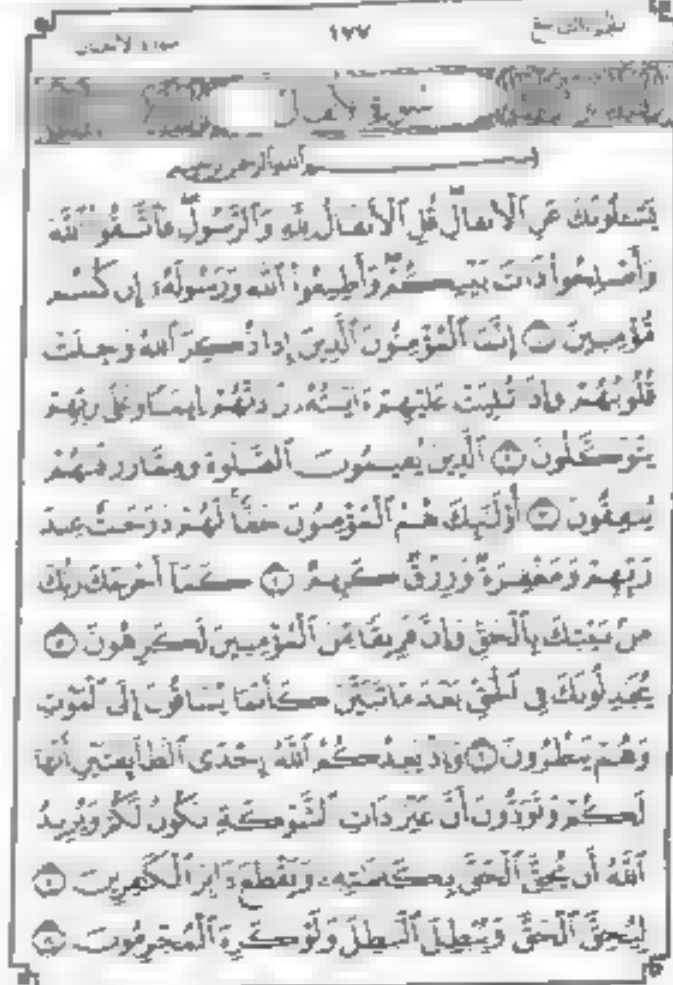 الجزء التاسع ١٧٧ سورة الأنفال
سورة الأنفال
بسم الله الرحمن الرحيم
يَسْـَٔلُونَكَ عَنِ ٱلْأَنفَالِ قُلِ ٱلْأَنفَالُ لِلَّهِ وَٱلرَّسُولِ فَٱتَّقُوا۟ ٱللَّهَ
وَأَصْلِحُوا۟ ذَاتَ بَيْنِكُمْ وَأَطِيعُوا۟ ٱللَّهَ وَرَسُولَهُۥٓ إِن كُنتُم
مُّؤْمِنِينَ ١ إِنَّمَا ٱلْمُؤْمِنُونَ ٱلَّذِينَ إِذَا ذُكِرَ ٱللَّهُ وَجِلَتْ
قُلُوبُهُمْ وَإِذَا تُلِيَتْ عَلَيْهِمْ ءَايَـٰتُهُۥ زَادَتْهُمْ إِيمَـٰنًا وَعَلَىٰ رَبِّهِمْ
يَتَوَكَّلُونَ ٢ ٱلَّذِينَ يُقِيمُونَ ٱلصَّلَوٰةَ وَمِمَّا رَزَقْنَـٰهُمْ
يُنفِقُونَ ٣ أُو۟لَـٰٓئِكَ هُمُ ٱلْمُؤْمِنُونَ حَقًّا لَّهُمْ دَرَجَـٰتٌ عِندَ
رَبِّهِمْ وَمَغْفِرَةٌ وَرِزْقٌ كَرِيمٌ ٤ كَمَآ أَخْرَجَكَ رَبُّكَ
مِنۢ بَيْتِكَ بِٱلْحَقِّ وَإِنَّ فَرِيقًا مِّنَ ٱلْمُؤْمِنِينَ لَكَـٰرِهُونَ ٥
يُجَـٰدِلُونَكَ فِى ٱلْحَقِّ بَعْدَ مَا تَبَيَّنَ كَأَنَّمَا يُسَاقُونَ إِلَى ٱلْمَوْتِ
وَهُمْ يَنظُرُونَ ٦ وَإِذْ يَعِدُكُمُ ٱللَّهُ إِحْدَى ٱلطَّآئِفَتَيْنِ أَنَّهَا
لَكُمْ وَتَوَدُّونَ أَنَّ غَيْرَ ذَاتِ ٱلشَّوْكَةِ تَكُونُ لَكُمْ وَيُرِيدُ
ٱللَّهُ أَن يُحِقَّ ٱلْحَقَّ بِكَلِمَـٰتِهِۦ وَيَقْطَعَ دَابِرَ ٱلْكَـٰفِرِينَ ٧
لِيُحِقَّ ٱلْحَقَّ وَيُبْطِلَ ٱلْبَـٰطِلَ وَلَوْ كَرِهَ ٱلْمُجْرِمُونَ ٨